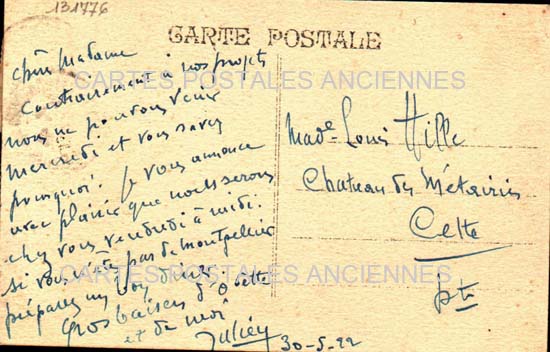 131776
CARTE POSTALE
CARTES POSTALES ANCIENNES
chère Madame
Contrairement à nos projets
nous ne pouvons venir
mercredi et vous savez
pourquoi. Je vous annonce
avec plaisir que nous serons
chez vous vendredi à midi.
si vous n'êtes pas de Montpellier
préparez un bon
Gros baisers d'Odette
et de moi
Julien
30-5-22
Made Louis Hille
Chateau des Métairies
Cette
CARTES POSTALES ANCIENNES